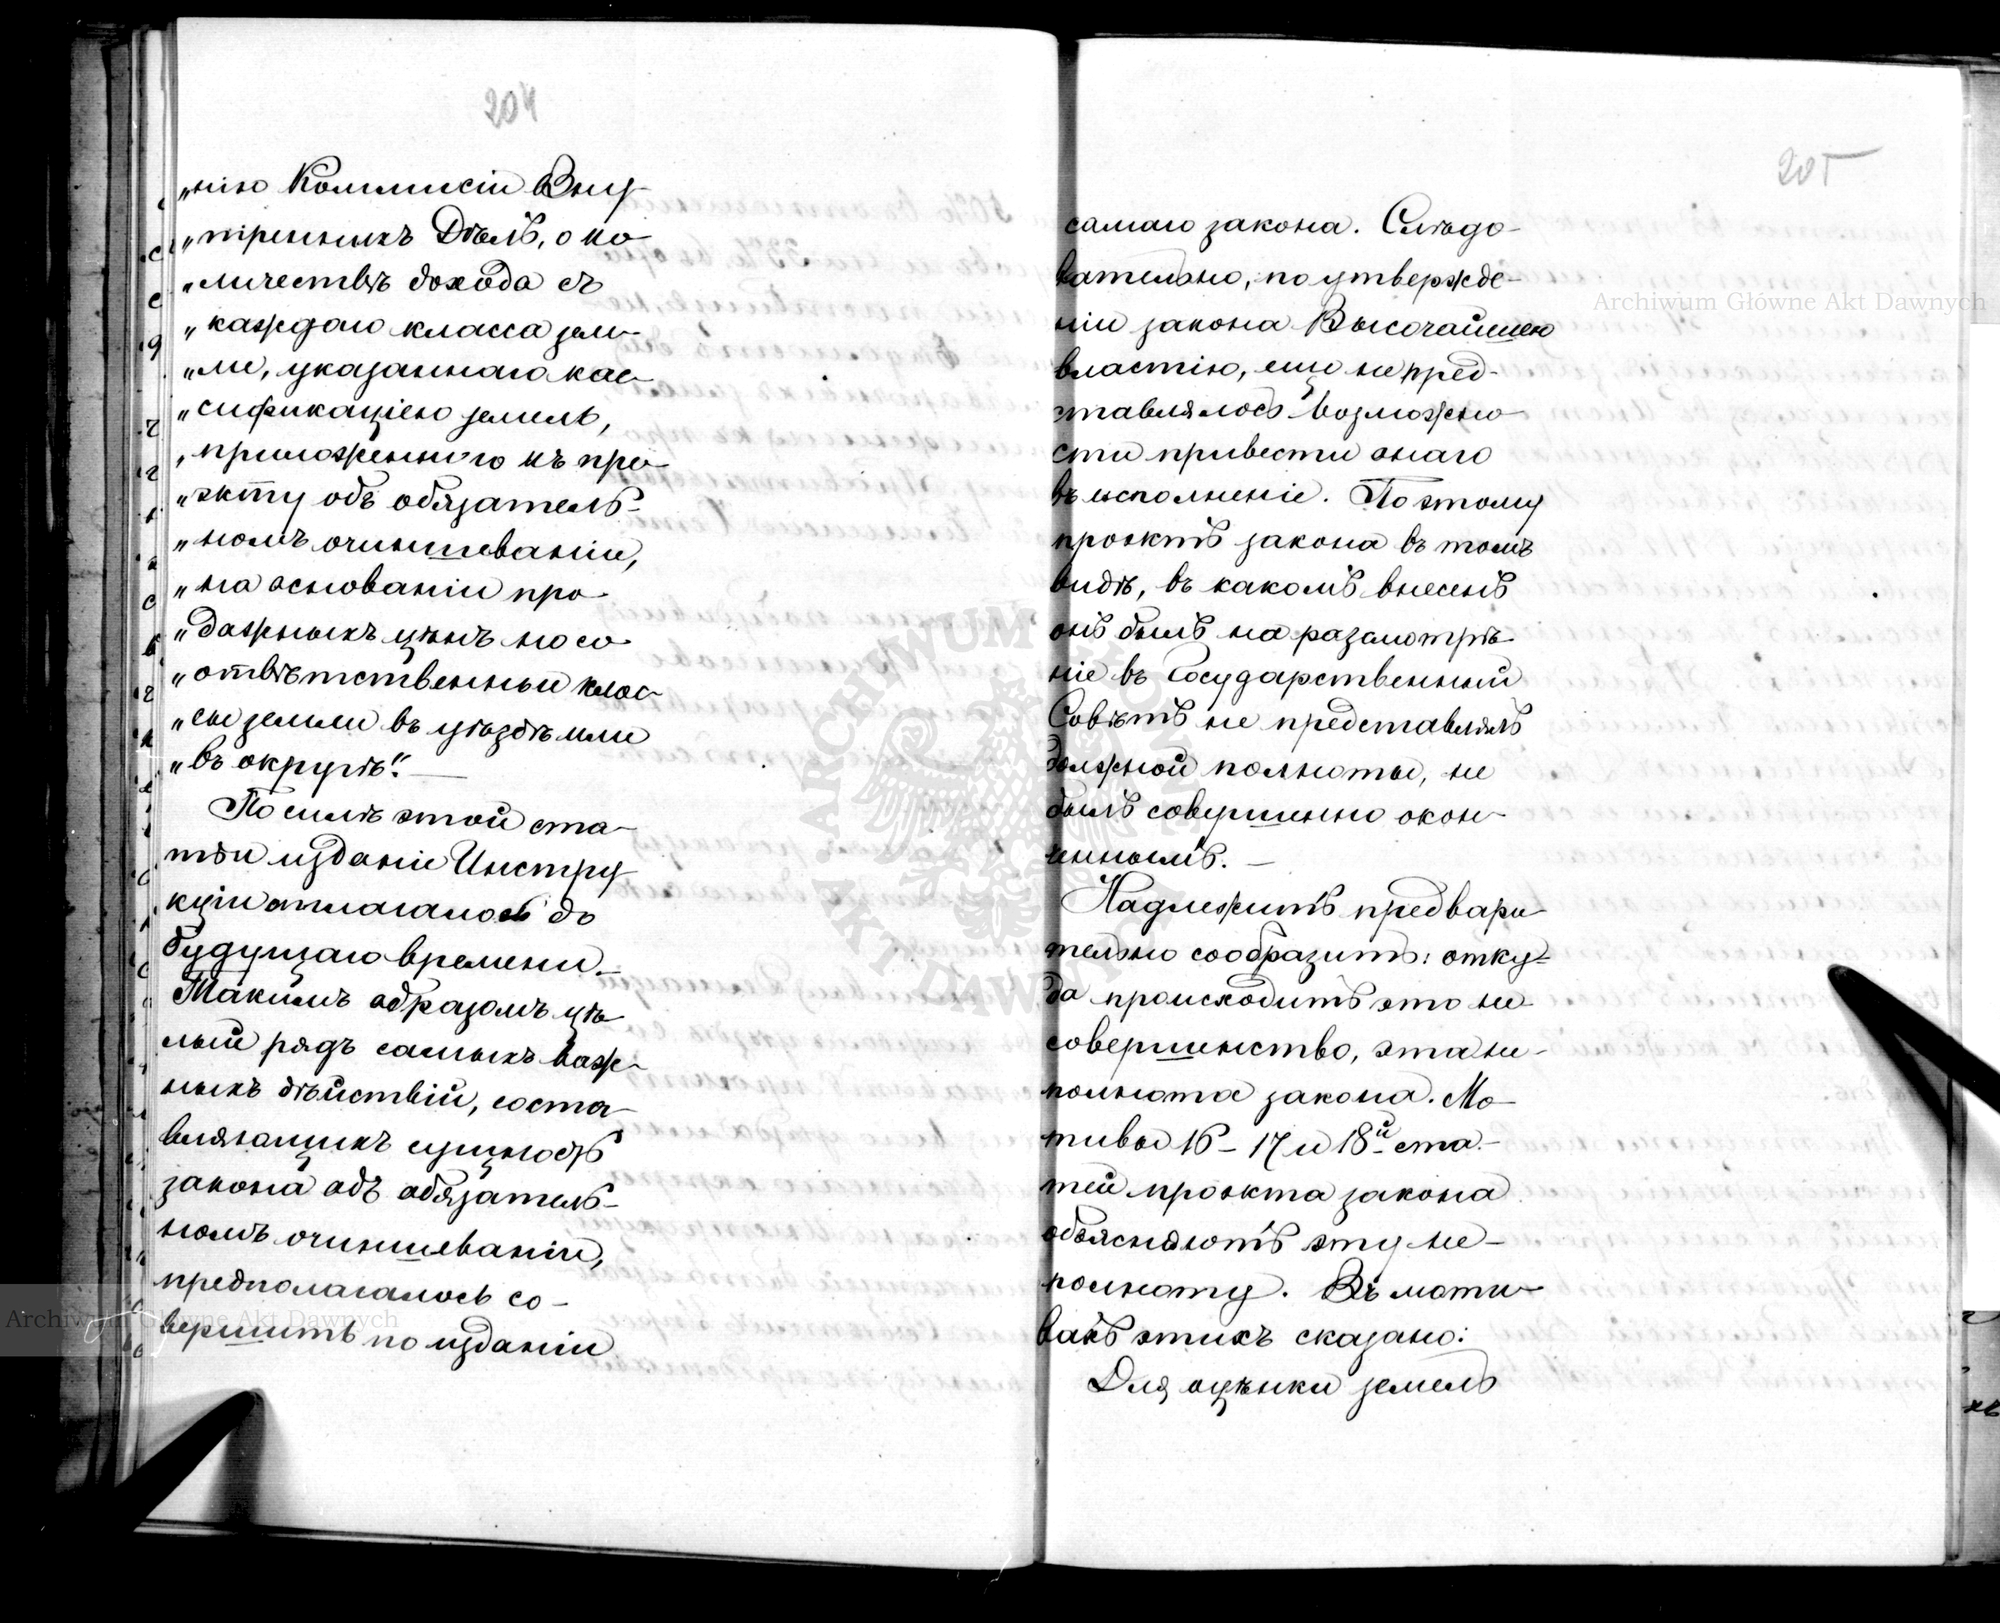 204
„нію Коммисіи Вну-
„тренныхъ Дѣлъ, о ко-
„личествѣ дохода съ
„каждаго класса зем-
„ли, указаннаго клас-
„сификаціею земель,
„приложеннаго къ про-
„экту объ обязатель-
„номъ очиншеваніи,
„на основаніи про-
„дажныхъ цѣнъ на со-
„отвѣтственныи клас-
„сы земли въ уѣздѣ или
„въ округѣ“. —
По силѣ этой ста-
тьи изданіе Инстру-
кціи отлагалось до
будущаго времени. —
Такимъ образомъ цѣ-
лый рядъ самыхъ важ-
ныхъ дѣйствій, соста-
вляющихъ сущность
закона объ обязатель-
номъ очиншеваніи,
предполагалось со-
вершить по изданіи
205
самаго закона. Слѣдо-
вательно, по утвержде-
ніи закона Высочайшею
властію, еще не пред-
ставлялось возможно-
сти привести онаго
въ исполненіе. Поэтому
проэктъ закона въ томъ
видѣ, въ какомъ внесенъ
онъ былъ на разсмотрѣ-
ніе въ Государственный
Совѣтъ не представлялъ
должной полноты, не
былъ совершенно окон-
ченнымъ. —
Надлежитъ предвари-
тельно сообразить: отку-
да происходитъ это не-
совершенство, эта не-
полнота закона. Мо-
тивы 16 - 17 и 18й ста-
тей проэкта закона
объясняютъ эту не-
полноту. Въ моти-
вахъ этихъ сказано:
Для оцѣнки земель
Archiwum Główne Akt Dawnych
Archiwum Główne Akt Dawnych
ARCHIWUM GŁÓWNE AKT DAWNYCH